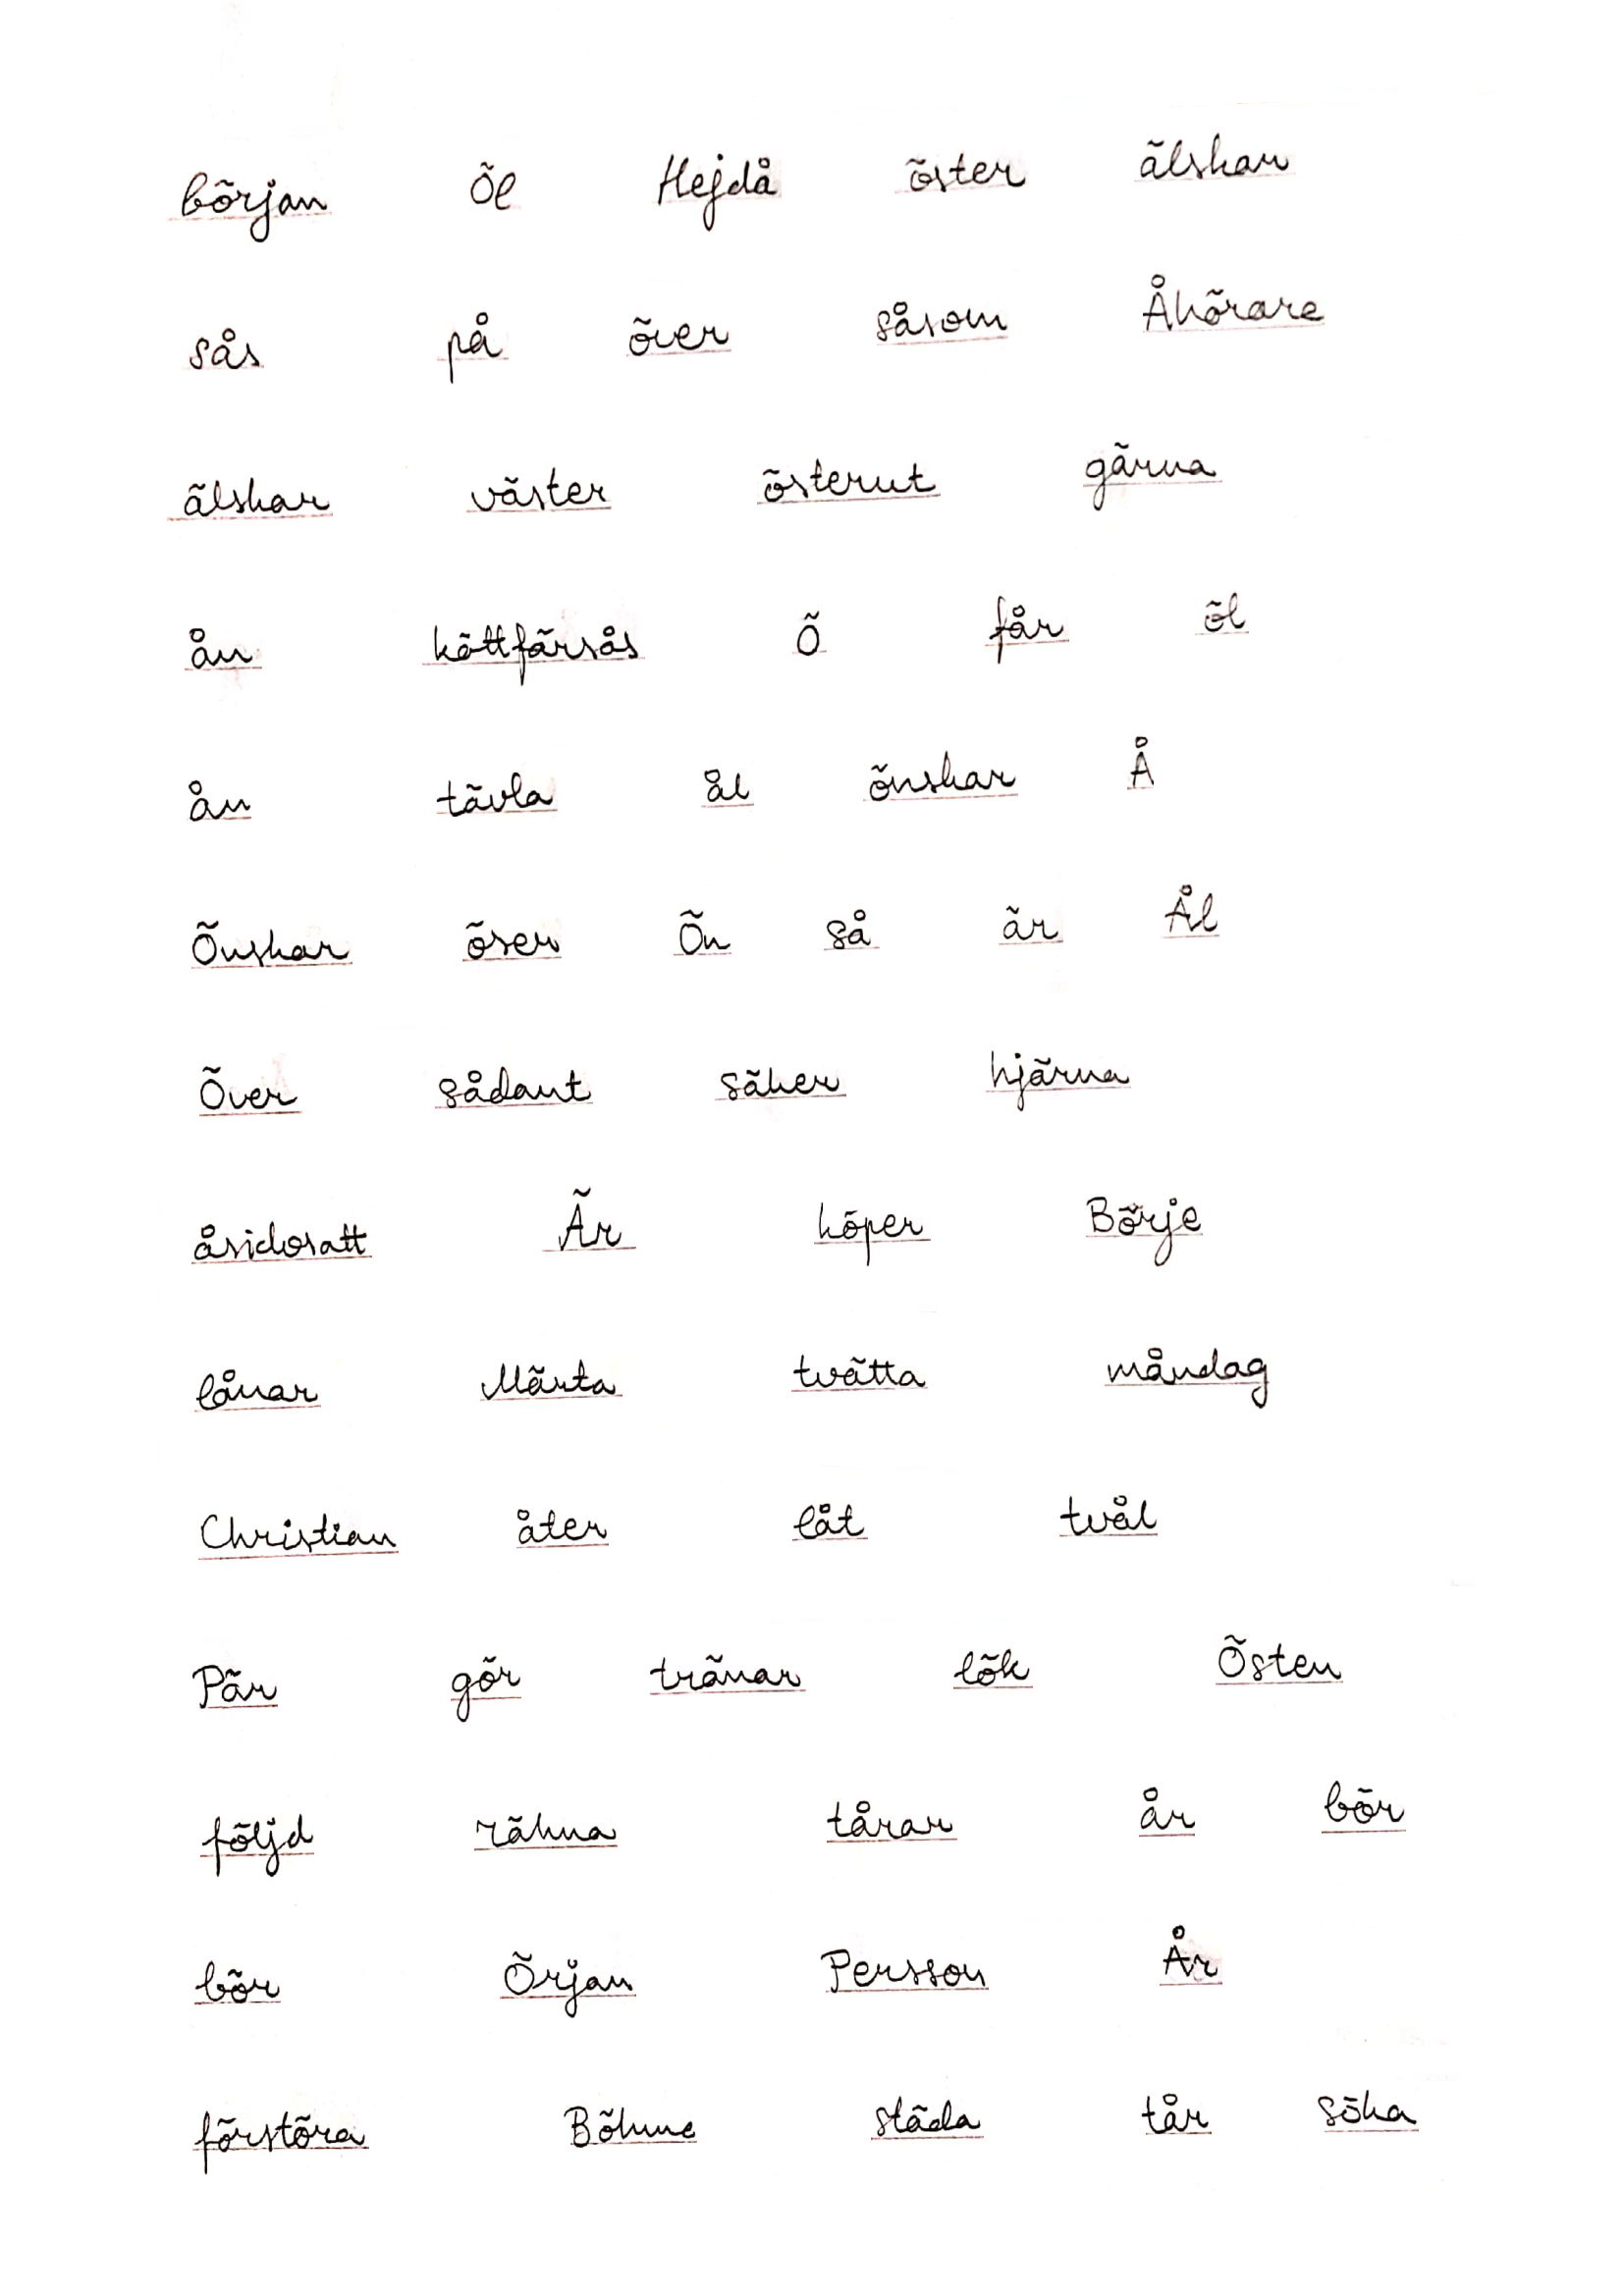 början Öl Hejdå öster älskar
sås på över såsom Åhörare
älskar väster österut gärna
ån köttfärsås Ö får öl
ån tävla ål önskar Å
Önskar öser Ön så är Ål
Över sådant säker hjärna
åsidosatt Är köper Börje
lånar Märta tvätta måndag
Christian åter låt tvål
Pär gör tränar lök Östen
följd räkna tårar år bör
bör Örjan Persson År
förstöra Böhme städa tår söka